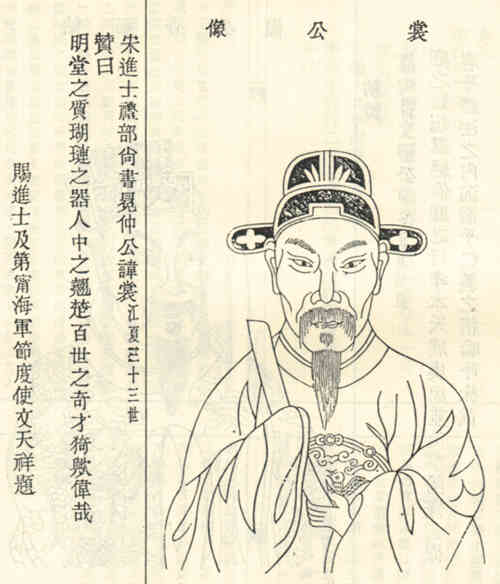 裳公像
宋進士禮部尚書冕仲公諱裳江夏十三世
贊曰
明堂之質瑚璉之器人中之翹楚百世之奇才猗歟偉哉
賜進士及第甯海軍節度使文天祥題